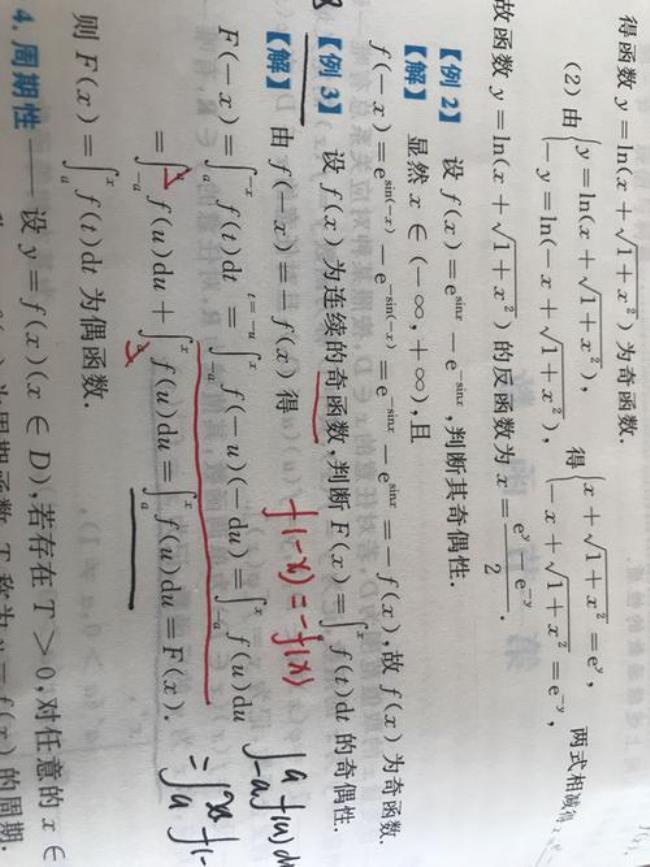 得函数 y=ln(x+√(1+x²))为奇函数.
(2)由{y=ln(x+√(1+x²)), -y=ln(-x+√(1+x²)), 得{x+√(1+x²)=e^y, -x+√(1+x²)=e^{-y}, 两式相减得
故函数 y=ln(x+√(1+x²))的反函数为 x=(e^y-e^{-y})/2.
【例 2】 设 f(x)=e^{sinx}-e^{-sinx},判断其奇偶性.
【解】 显然 x∈(-∞,+∞),且
f(-x)=e^{sin(-x)}-e^{-sin(-x)}=e^{-sinx}-e^{sinx}=-f(x),故 f(x)为奇函数.
【例 3】 设 f(x)为连续的奇函数,判断 F(x)=∫_a^x f(t)dt 的奇偶性.
f(-x)=-f(x)
【解】 由 f(-x)=-f(x)得
F(-x)=∫_a^{-x} f(t)dt \overset{t=-u}{=} ∫_{-a}^x f(-u)(-du)=∫_{-a}^x f(u)du
∫_{-a}^a f(u)d
=∫_{-a}^a f(u)du+∫_a^x f(u)du=∫_a^x f(u)du=F(x).
则 F(x)=∫_a^x f(t)dt 为偶函数.
4. 周期性——设 y=f(x)(x∈D),若存在 T>0,对任意的 x∈
为周期函数,T 称为 y=f(x)的周期.